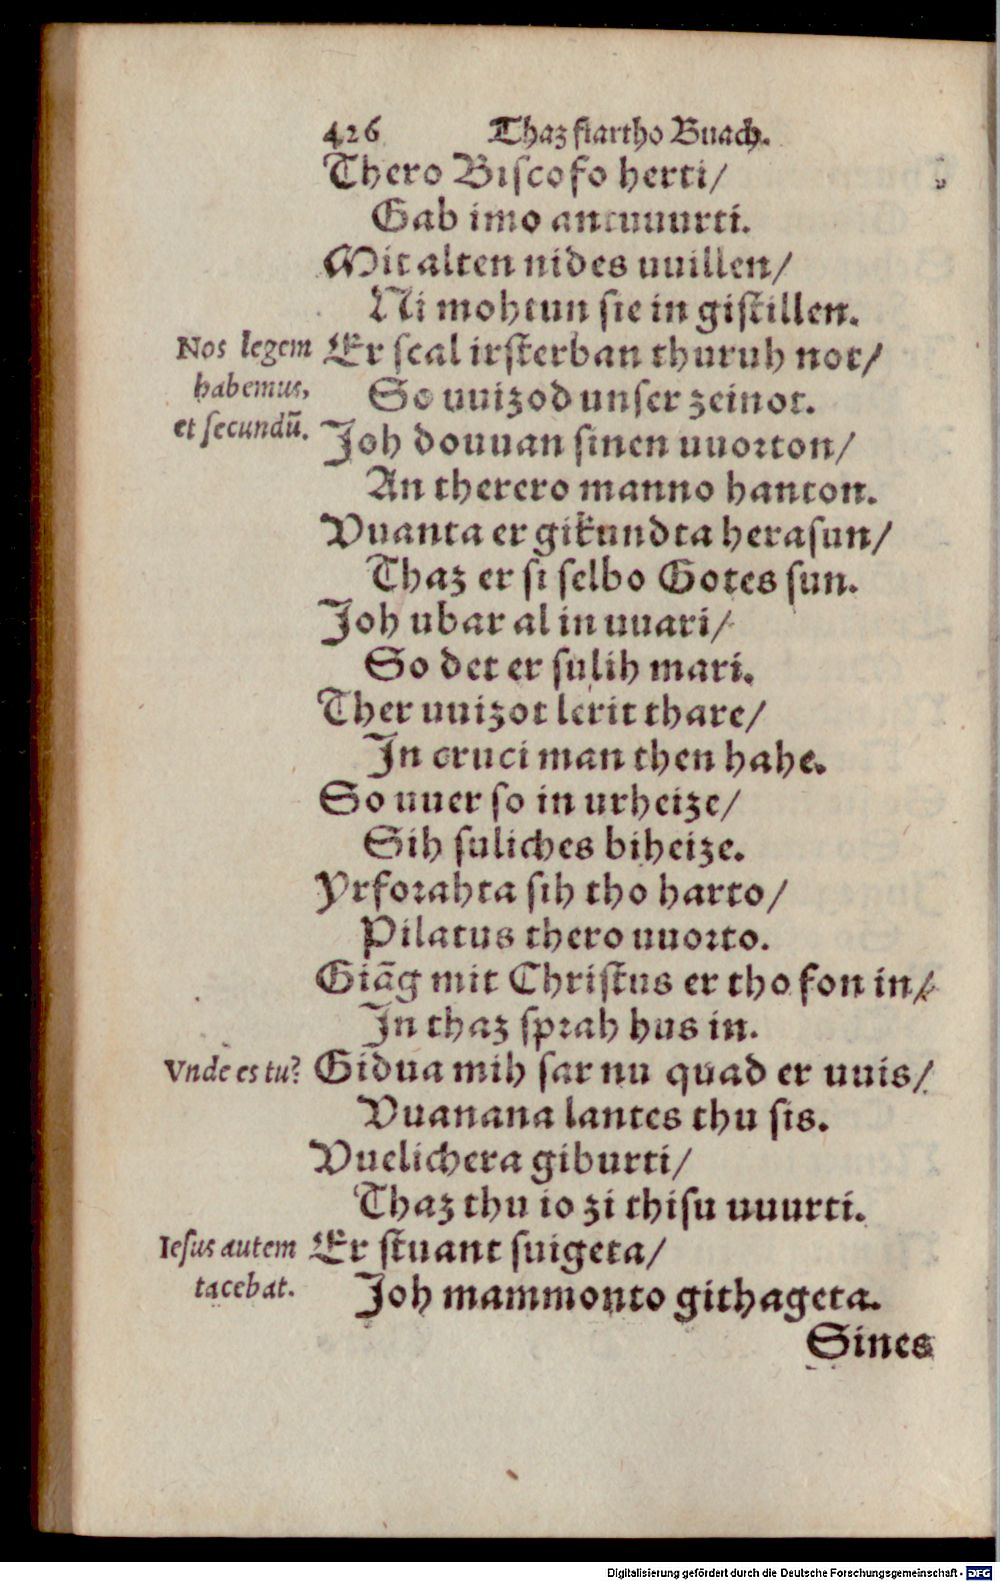 426 Thaz fiartho Buach.
Thero Biscofo herti/
Gab imo antuuurti.
Mit alten nides uuillen/
Ni mohtun sie in gistillen.
Nos legem
habemus,
et secundū.
Er scal irsterban thuruh not/
So uuizod unser zeinot.
Joh douuan sinen uuorton/
An therero manno hanton.
Vuanta er gikundta herasun/
Thaz er si selbo Gotes sun.
Joh ubar al in uuari/
So det er sulih mari.
Ther uuizot lerit thare/
In cruci man then hahe.
So uuer so in urheize/
Sih suliches biheize.
Yrforahta sih tho harto/
Pilatus thero uuorto.
Giāg mit Christus er tho fon in/
In thaz sprah hus in.
Vnde es tu?
Gidua mih sar nu quad er uuis/
Vuanana lantes thu sis.
Vuelichera giburti/
Thaz thu io zi thisu uuurti.
Iesus autem
tacebat.
Er stuant suigeta/
Joh mammonto githageta.
Sines
Digitalisierung gefördert durch die Deutsche Forschungsgemeinschaft - DFG